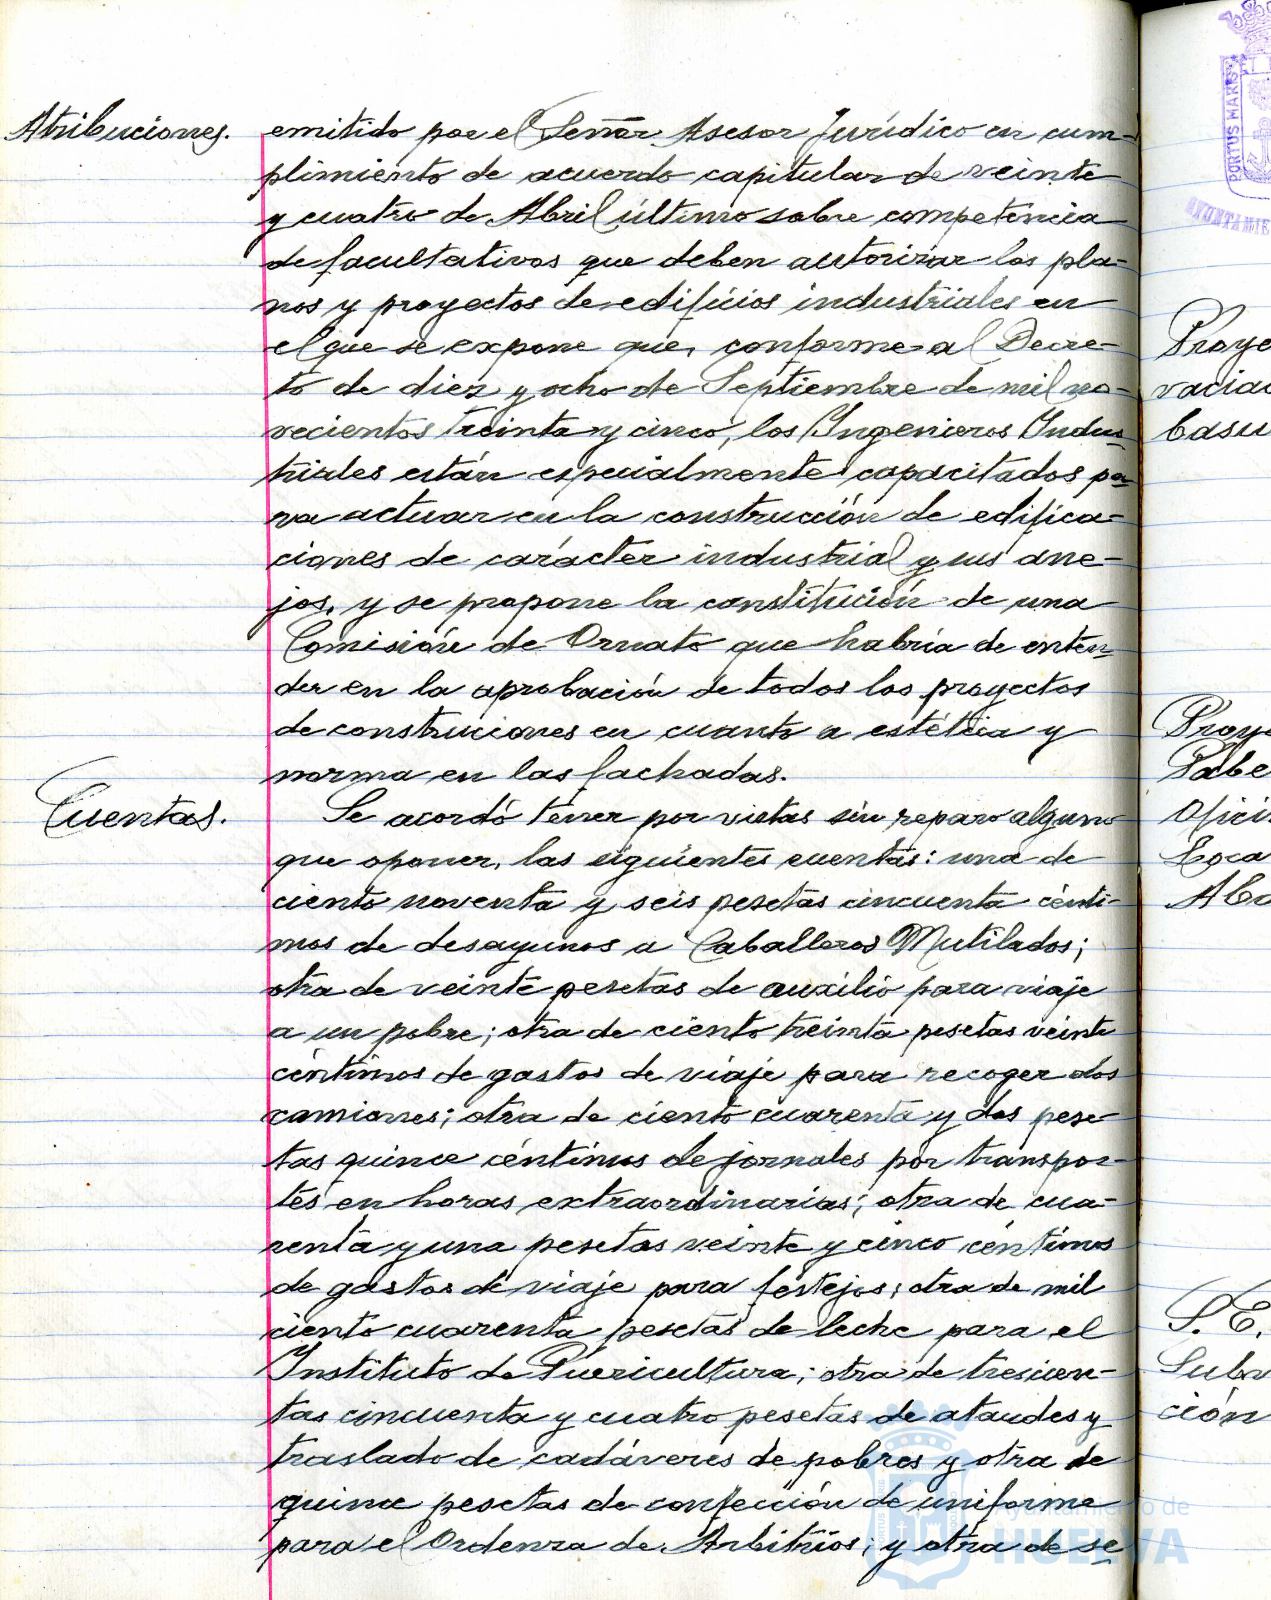 Atribuciones.
emitido por el Señor Asesor Jurídico en cum-
plimiento de acuerdo capitular de veinte
y cuatro de Abril último sobre competencia
de facultativos que deben autorizar los pla-
nos y proyectos de edificios industriales en
el que se expone que, conforme al Decre-
to de diez y ocho de Septiembre de mil no-
vecientos treinta y cinco, los Ingenieros Indus-
triales están especialmente capacitados pa-
ra actuar en la construcción de edifica-
ciones de carácter industrial y sus ane-
jos, y se propone la constitución de una
Comisión de Ornato que habría de enten-
der en la aprobación de todos los proyectos
de construciones en cuanto a estética y
norma en las fachadas.
Cuentas.
Se acordó tener por vistas sin reparo alguno
que oponer, las siguientes cuentas: una de
ciento noventa y seis pesetas cincuenta cénti-
mos de desayunos a Caballeros Mutilados;
otra de veinte pesetas de auxilio para viaje
a un pobre; otra de ciento treinta pesetas veinte
céntimos de gastos de viaje para recoger dos
camiones; otra de ciento cuarenta y dos pese-
tas quince céntimos de jornales por transpor-
tes en horas extraordinarias; otra de cua-
renta y una pesetas veinte y cinco céntimos
de gastos de viaje para festejos; otra de mil
ciento cuarenta pesetas de leche para el
Instituto de Puericultura; otra de trescien-
tas cincuenta y cuatro pesetas de ataudes y
traslado de cadáveres de pobres y otra de
quince pesetas de confección de uniforme
para el Ordenza de Arbitrios; y otra de se
Proye
vaciad
basu
Proye
Tabe
Ofici
Loca
Aba
S. E.
Subv
ción
PORTUS MARIS
AYUNTAMIE
Ayuntamiento de
HUELVA